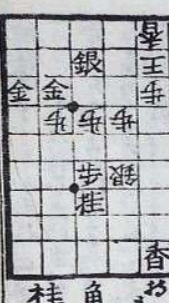 香
銀 王
金 金 歩
歩 歩 歩
歩 銀
桂
香
桂 角 持